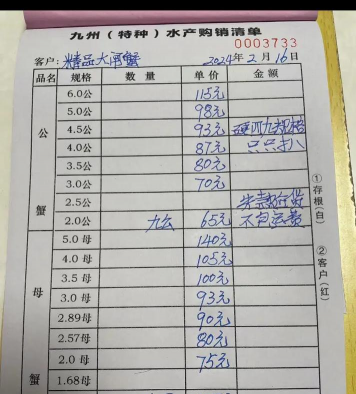 九州（特种）水产购销清单
0003733
客户：精品大闸蟹 2024年2月16日
品名 规格 数量 单价 金额
公蟹
6.0公 115元
5.0公 98元
4.5公 93元 规格
4.0公 87元 只只
3.5公 80元
3.0公 70元
2.5公
2.0公 65元 不包运费
母蟹
5.0母 140元
4.0母 105元
3.5母 100元
3.0母 93元
2.89母 90元
2.57母 80元
2.0母 75元
1.68母
①存根（白）
②客户（红）